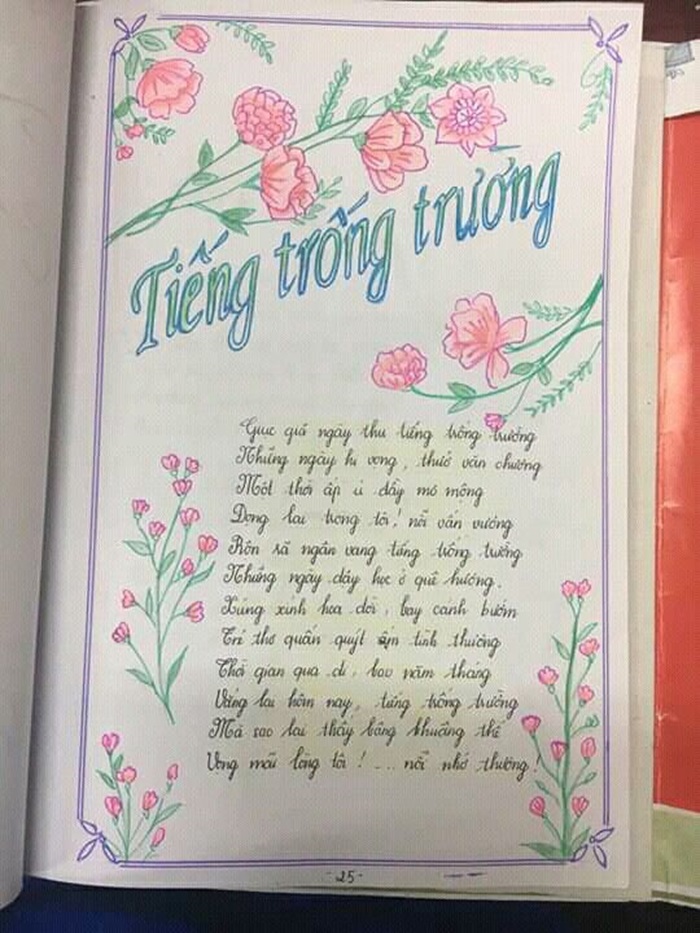 Tiếng trống trường
Giục giã ngày thu tiếng trống trường
Những ngày hi vọng, thuở văn chương
Một thời ấp ủ đầy mơ mộng
Đọng lại trong tôi! nỗi vấn vương
Rộn rã ngân vang tiếng trống trường
Những ngày dạy học ở quê hương.
Xúng xính hoa dời, bay cánh bướm
Trẻ thơ quấn quýt ấm tình thương
Thời gian qua đi, bao năm tháng
Vẳng lại hôm nay, tiếng trống trường
Mà sao lại thấy bâng khuâng thế
Vọng mãi lòng tôi! .... nỗi nhớ thương!
-25-